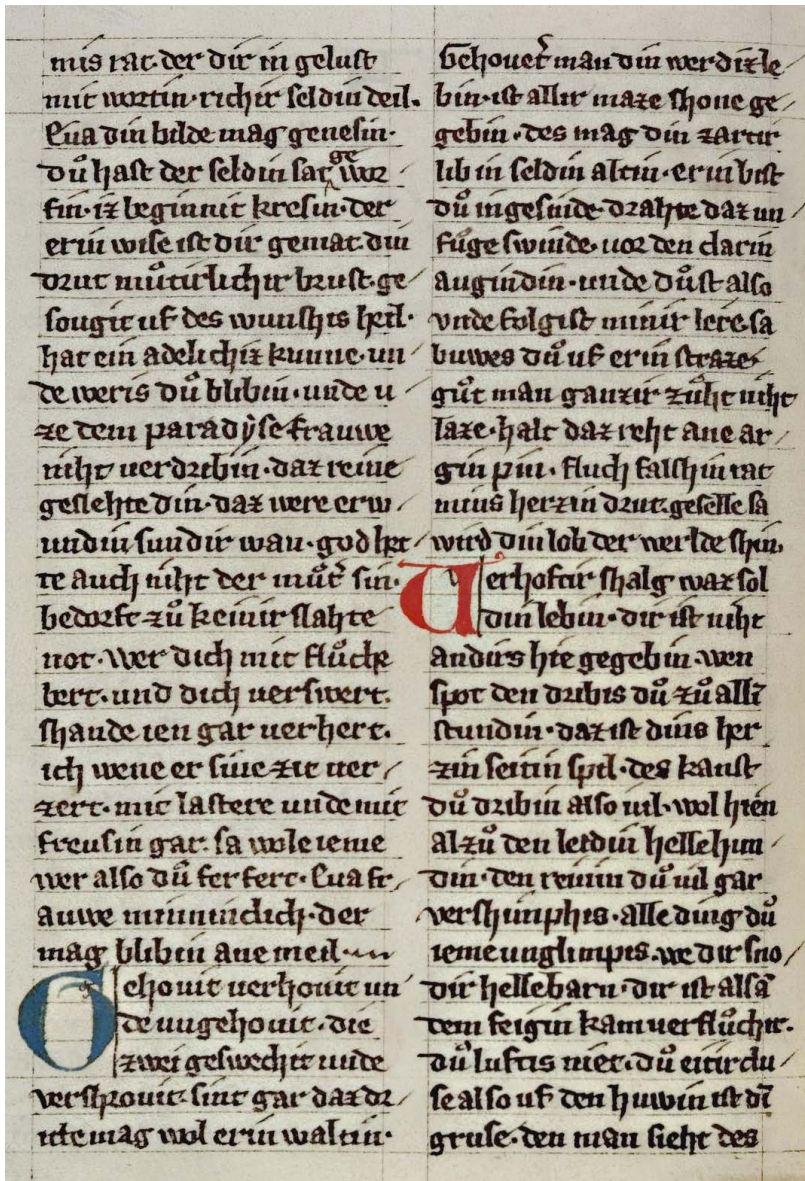 mis rat·der dir in gelust
mit wortin·richir seldin deil·
Eua din bilde mag genesin·
důhast der seldin sat ge wor
fin·iz beginnit kresin·der
erin wise ist dir gemat·din
drut můtirlichir brust·ge
sougit uf des wunshis heil·
hat ein adelichiz kunne·un
de weris dů blibin·unde u
ze dem paradẏse frauwe
niht uerdribin·daz reine
geslehte din·daz were erw
undin sundir wan·god het
te auch niht der můt͛ sin·
bedorft zů keinir slahte
not·wer dich mit flůche
bert·und dich uerswert·
shande ien gar uerhert·
ich wene er sine zit uer
zert·mit lastere unde mit
freusin gar·sa wole ieme
wer also dů fer fert·Eua fr
auwe minnicklich·der
mag blibin ane meil·
Gehouit uerhouit un
de ungehouit·die
zwei geswechit unde
vershrouit·sint gar daz dr
itte mag wol erin waltin·
Gehouet͛ man din werdiz le
bin·ist allir maze shone ge
gebin·des mag din zartir
lib in seldin altin·erin bist
dů ingesinde·drahte daz un
fůge swinde·uor den clarin
augindin·unde důst also
vnde folgist minir lere·sa
buwes dů uf erin straze·
gůt man ganzir zůht niht
laze·halt daz reht ane ar
gin pin·fluch falshin rat
minis herzin drut·geselle sa
wird din lob der werlde shin·
Uerhoftir shalg waz sol
din lebin·dir ist niht
andirs hie gegebin·wen
spot den dribis dů zů allī
stundin·daz ist dinis her
zin seitin spil·des kanst
dů dribin also uil·wol hien
al·zů den leidin hellehun
din·den reinin dů uil gar
vershimphis·alle ding dů
ieme unglimpis·we dir sno
dir hellebarn·dir ist alsā
dem feigin kam uerflůchit·
dů luftis niet·dů eitirclu
se also uf den huwin ist dī
gruse·den man sieht des